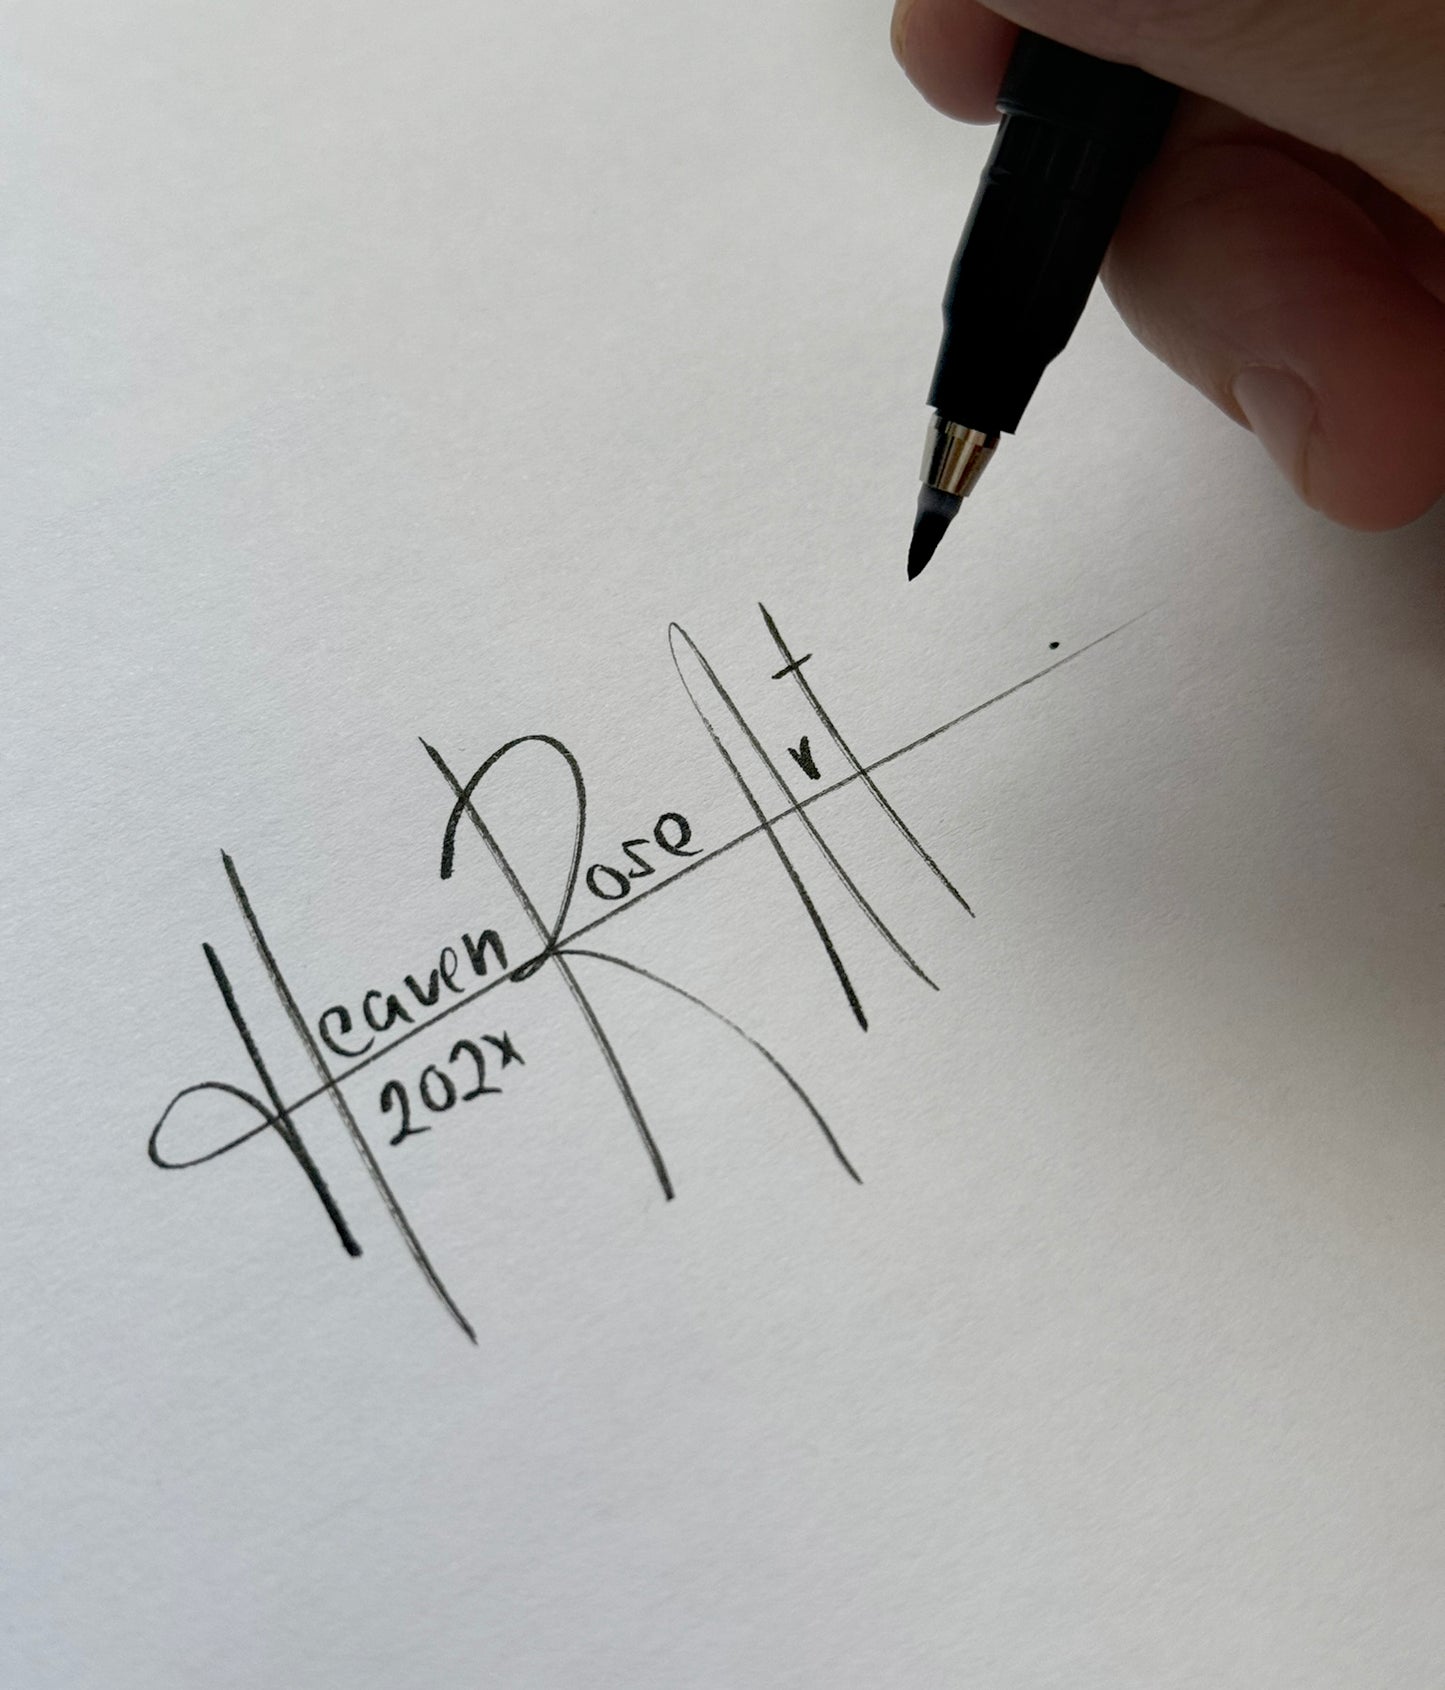 Heaven Rose Art
202x